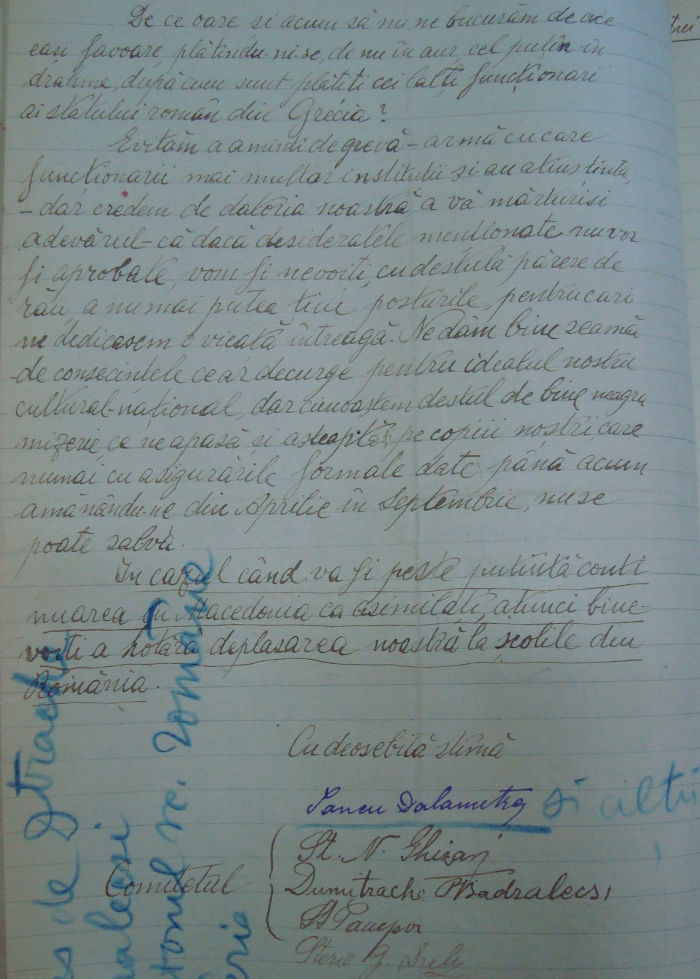 De ce oare si acum să nu ne bucurăm de ace
eași favoare, plătindu-ni-se, de nu în aur cel puțin în
drahme, după cum sunt plătiți ceilalți funcționari
ai statului român din Grecia?
Evităm a aminti de grevă - armă cu care
funcționarii mai multor instituții și-au atins ținta,
- dar credem de datoria noastră, a vă mărturisi
adevărul - că dacă desideratele menționate nu vor
fi aprobate, vom fi nevoiți, cu destulă părere de
rău, a nu mai putea ține posturile, pentru cari
ne dedicasem o vieată întreagă. Ne dăm bine seamă
de consecințele ce ar decurge pentru idealul nostru
cultural-național, dar cunoaștem destul de bine neagra
mizerie ce ne apasă și așteaptă pe copiii noștri, care
numai cu asigurările formale date până acum
amânându-ne din Aprilie în Septembrie, nu se
poate salva.
In cazul când va fi peste putință conti
nuarea în Macedonia ca asimilați, atunci bine-
voiți a hotărâ deplasarea noastră la școlile din
România.
Cu deosebită stimă
Iancu Dalametra și alții
Comitetul
St. N. Ghizari
Dumitrache Badralexi
Sterie G.
de
tonul rc. română